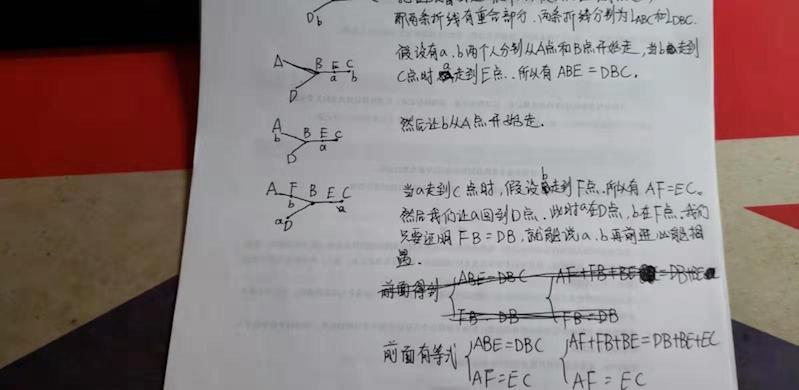 那两条折线有重合部分.两条折线分别为LABC和LDBC.
D b
假设有a、b两个人分别从A点和B点开始走,当b走到
C点时a走到E点.所以有ABE=DBC.
A B E C
a b
D
然后让b从A点开始走.
A B E C
b a
D
当a走到C点时,假设b走到F点.所以有AF=EC。
A F B E C
b a
a D
然后我们让a回到D点.此时a在D点,b在F点.我们
只要证明FB=DB,就能说a、b再前进必能相
遇.
前面得到 ABE=DBC AF+FB+BE=DB+BE
FB=DB FB=DB
前面有等式 ABE=DBC AF+FB+BE=DB+BE+EC
AF=EC AF=EC